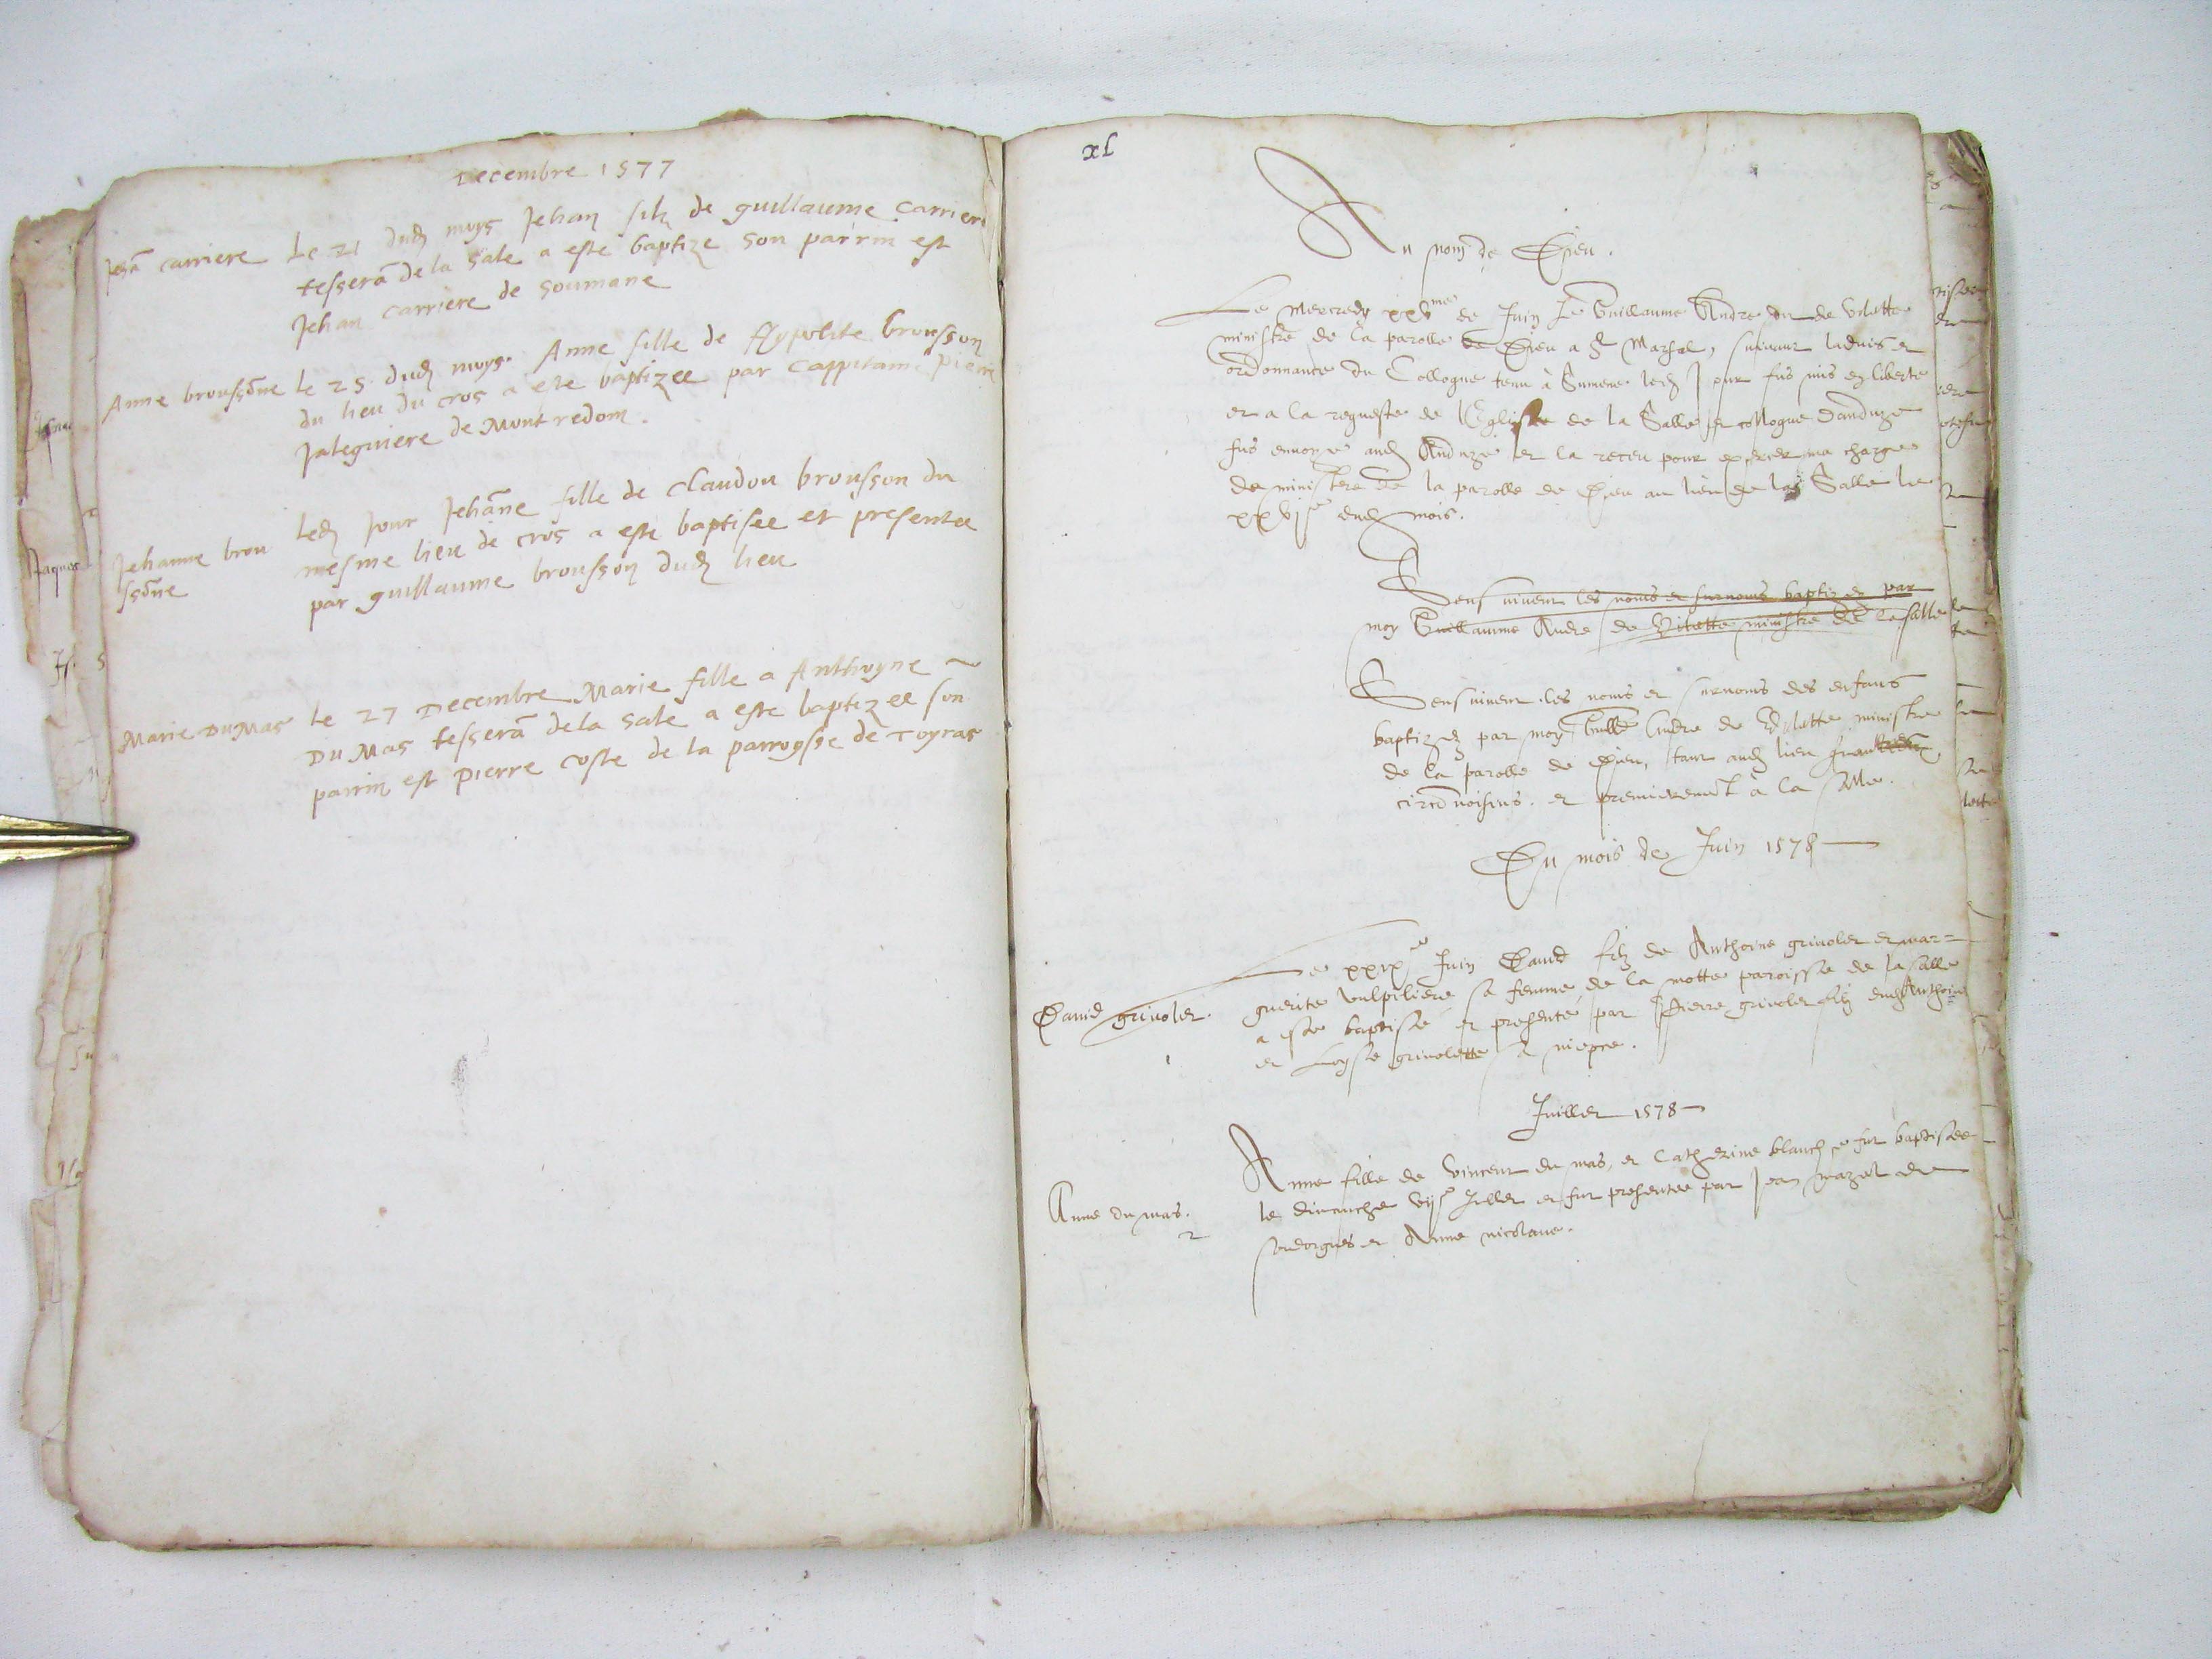 Decembre 1577
Jehã carriere Le 21 dud moys Jehan filz de guillaume carriere
tesserã de la sale a este baptize son parrin est
Jehan carriere de soumane
Anne broussõne le 25 dud moys Anne fille de Hypolite brousson
du lieu du cros a este baptizee par cappitaine pierre
Jaleguiere de Montredom.
Jehanne brou
ssõne
Led Jour Jehãne fille de claudou brousson du
mesme lieu de cros a este baptisee et presentee
par guillaume brousson dud lieu
Marie DuMas le 27 Decembre Marie fille a Anthoyne
Du Mas tesserã de la sale a este baptizee son
parrin est pierre coste de la parroysse de Toyras
xl
Au nom de Dieu.
Le Mercredy xxv me de Juin Je Guillaume Andre de Vilette
ministre de la parolle de Dieu a St Marsal, suivant ladvis et
ordonnance du Colloque tenu à Sumene led Jour fus mis en liberte
et a la requeste de l'Eglise de la Salle et colloque danduze
fus envoye aud Anduze et la receu pour exercer ma charge
de ministere de la parolle de Dieu au lieu de la Salle le
xxvj e dud mois.
Sensuivent les noms et surnoms baptizez par
moy Guillaume Andre de Vilette ministre de la salle
Sensuivent les noms et surnoms des enfans
baptizez par moy Guille Andre de Vilette ministre
de la parolle de Dieu, tant aud lieu
circõvoisins. et premieremẽt à la salle.
Du mois de Juin 1578
David grivolet.
1
Le xxix e Juin David filz de Anthoine grivolet et mar=
guerite vulpiliere sa femme de la motte paroisse de la salle
a este baptisé et presenté par Pierre grivolet filz dud Anthoine
et Loyse grivolette sa niepce.
Juillet 1578
Anne du mas.
2
Anne fille de Vincent du mas, et Catherine blanch e fut baptisee
le dimanche vj e Jullet et fut presentee par Jean mazel de
soudorgues et Anne nicolaue.